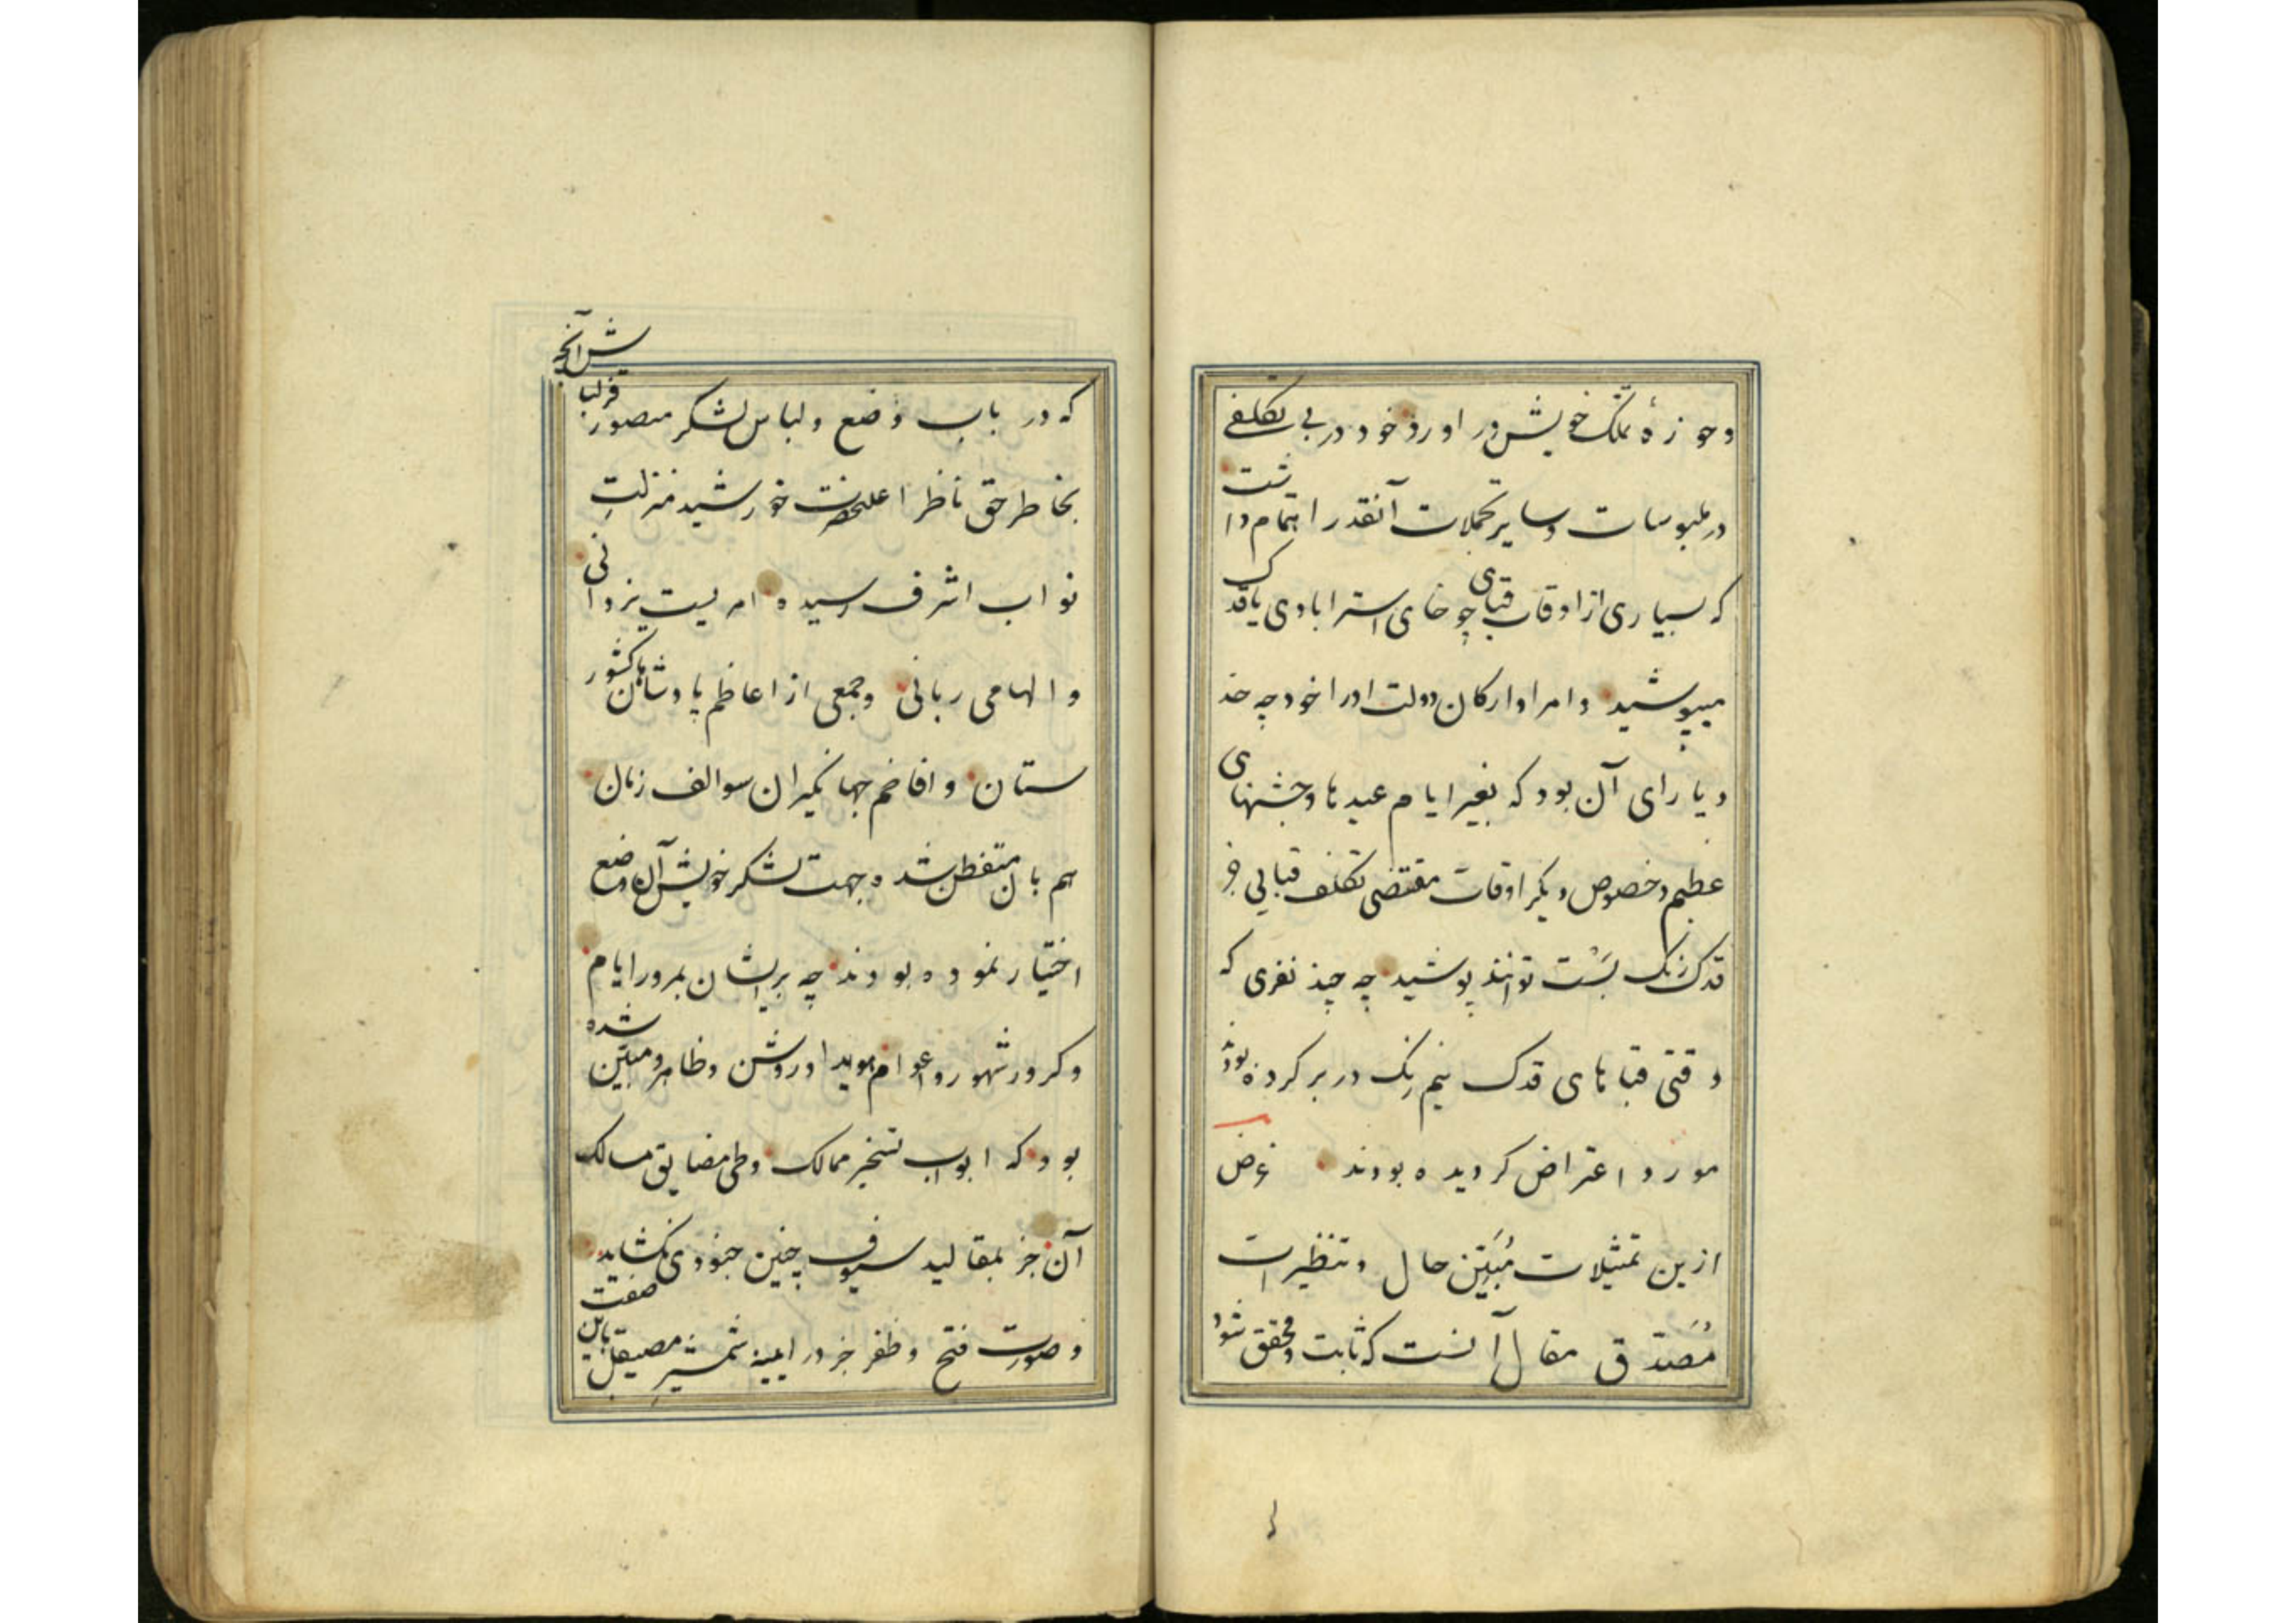 و حوزهٔ تملک خویش در آورد خود در بی تکلفی
در ملبوسات و سایر تجملات آنقدر اهتمام داشت
که بسیاری از اوقات قبای چوخای استرابادی یا قدک
میپوشید و امرا و ارکان دولت او را خود چه حد
و یارای آن بود که بغیر ایام عیدها و جشنهای
عظیم و خصوص دیگر اوقات مقتضی تکلف قبایی جز
قدک رنگ بست توانند پوشید چه چند نفری که
وقتی قباهای قدک نیم رنگ در بر کرده بودند
مورد اعتراض کردیده بودند غرض
ازین تمثیلات مُبَیّن حال و تنظیرات
مُصَدّق مقال آنست که ثابت و محقق شود
که در باب وضع و لباس لشکر منصور قزلباش آنچه
بخاطر حق ناظر اعلیحضرت خورشید منزلتِ
نواب اشرف رسیده امریست یزدانی
و الهامی ربانی و جمعی از اعاظم پادشاهان کشور
ستان و افاخم جهانگیران سوالف زمان
هم بآن متفطن شده جهت لشکر خویش آن وضع
اختیار نموده بودند چه بریشان بمرور ایام
و کرور شهور و اعوام هویدا و روشن و ظاهر و مبیّن شده
بود که ابواب تسخیر ممالک و طی مضایق مسالک
آن جز بمقالید سیوف چنین جنودی نکشاید
و صورت فتح و ظفر جز در ایینه شمشیرِ مصیقل باین صفت